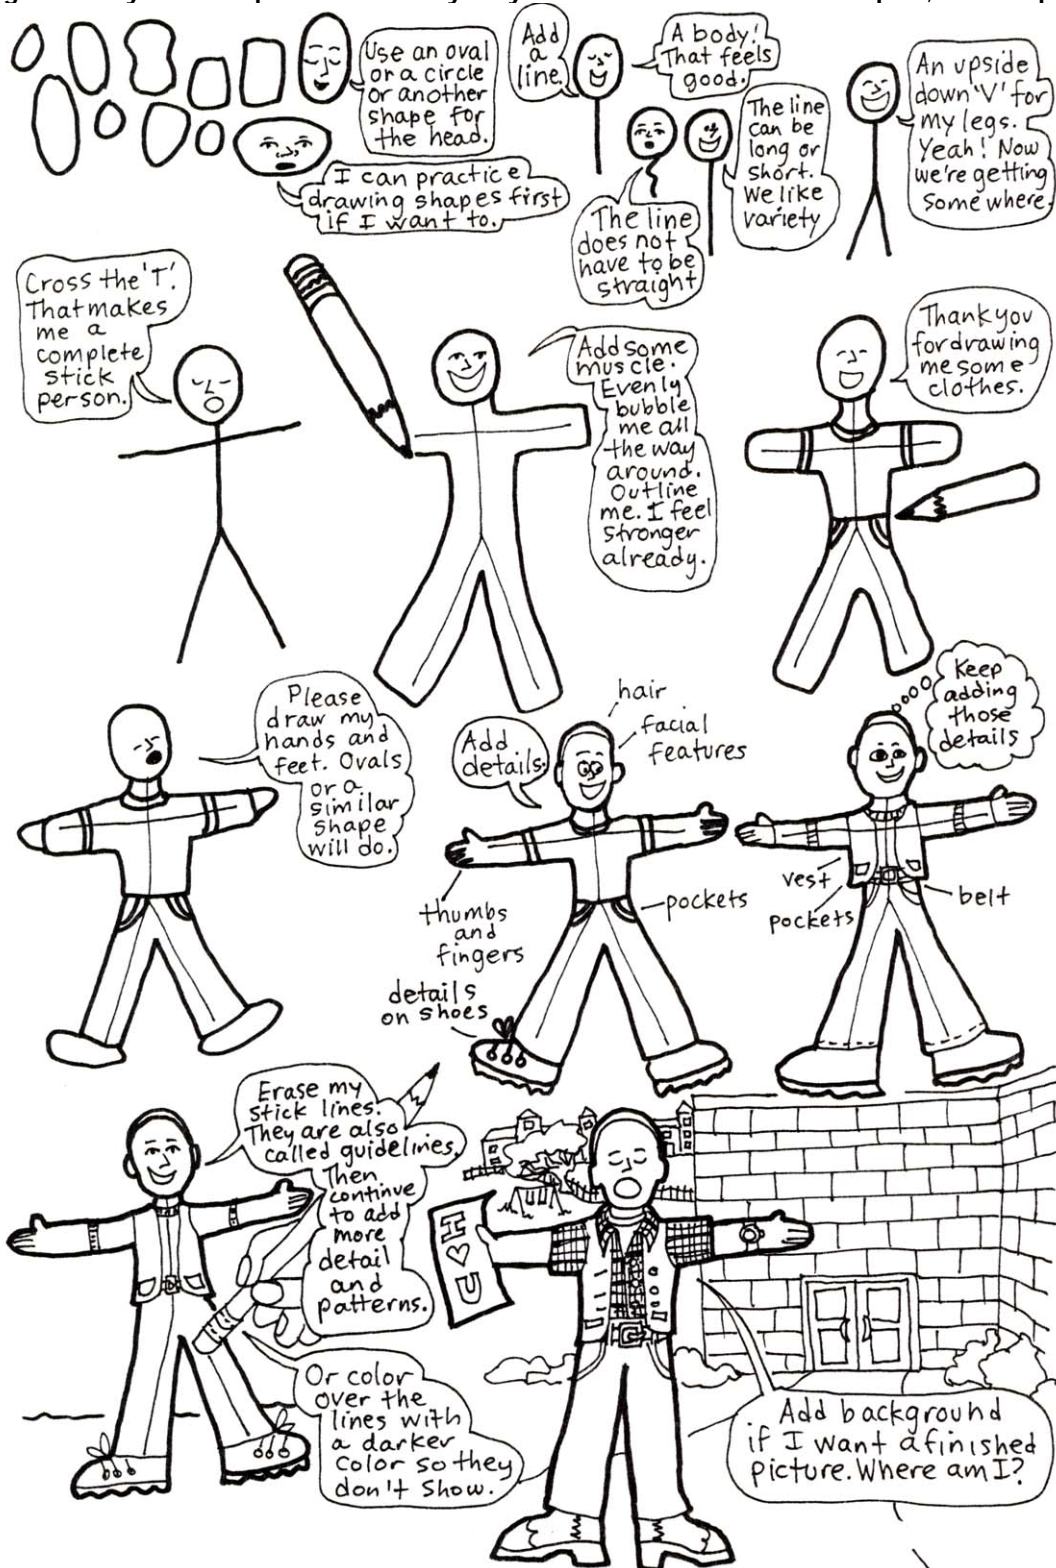 Use an oval
or a circle
or another
shape for
the head.
I can practice
drawing shapes first
if I want to.
Add
a
line.
A body!
That feels
good.
The line
does not
have to be
straight
The line
can be
long or
short.
We like
variety
An upside
down 'V' for
my legs.
Yeah! Now
we're getting
somewhere.
Cross the 'T'.
That makes
me a
complete
stick
person.
Add some
muscle.
Evenly
bubble
me all
the way
around.
Outline
me. I feel
stronger
already.
Thank you
for drawing
me some
clothes.
Please
draw my
hands and
feet. Ovals
or a
similar
shape
will do.
Add
details.
hair
facial
features
thumbs
and
fingers
pockets
details
on shoes
Keep
adding
those
details
vest
pockets
belt
Erase my
stick lines.
They are also
called guidelines.
Then
continue
to add
more
detail
and
patterns.
Or color
over the
lines with
a darker
color so they
don't show.
I
♡
U
Add background
if I want a finished
picture. Where am I?